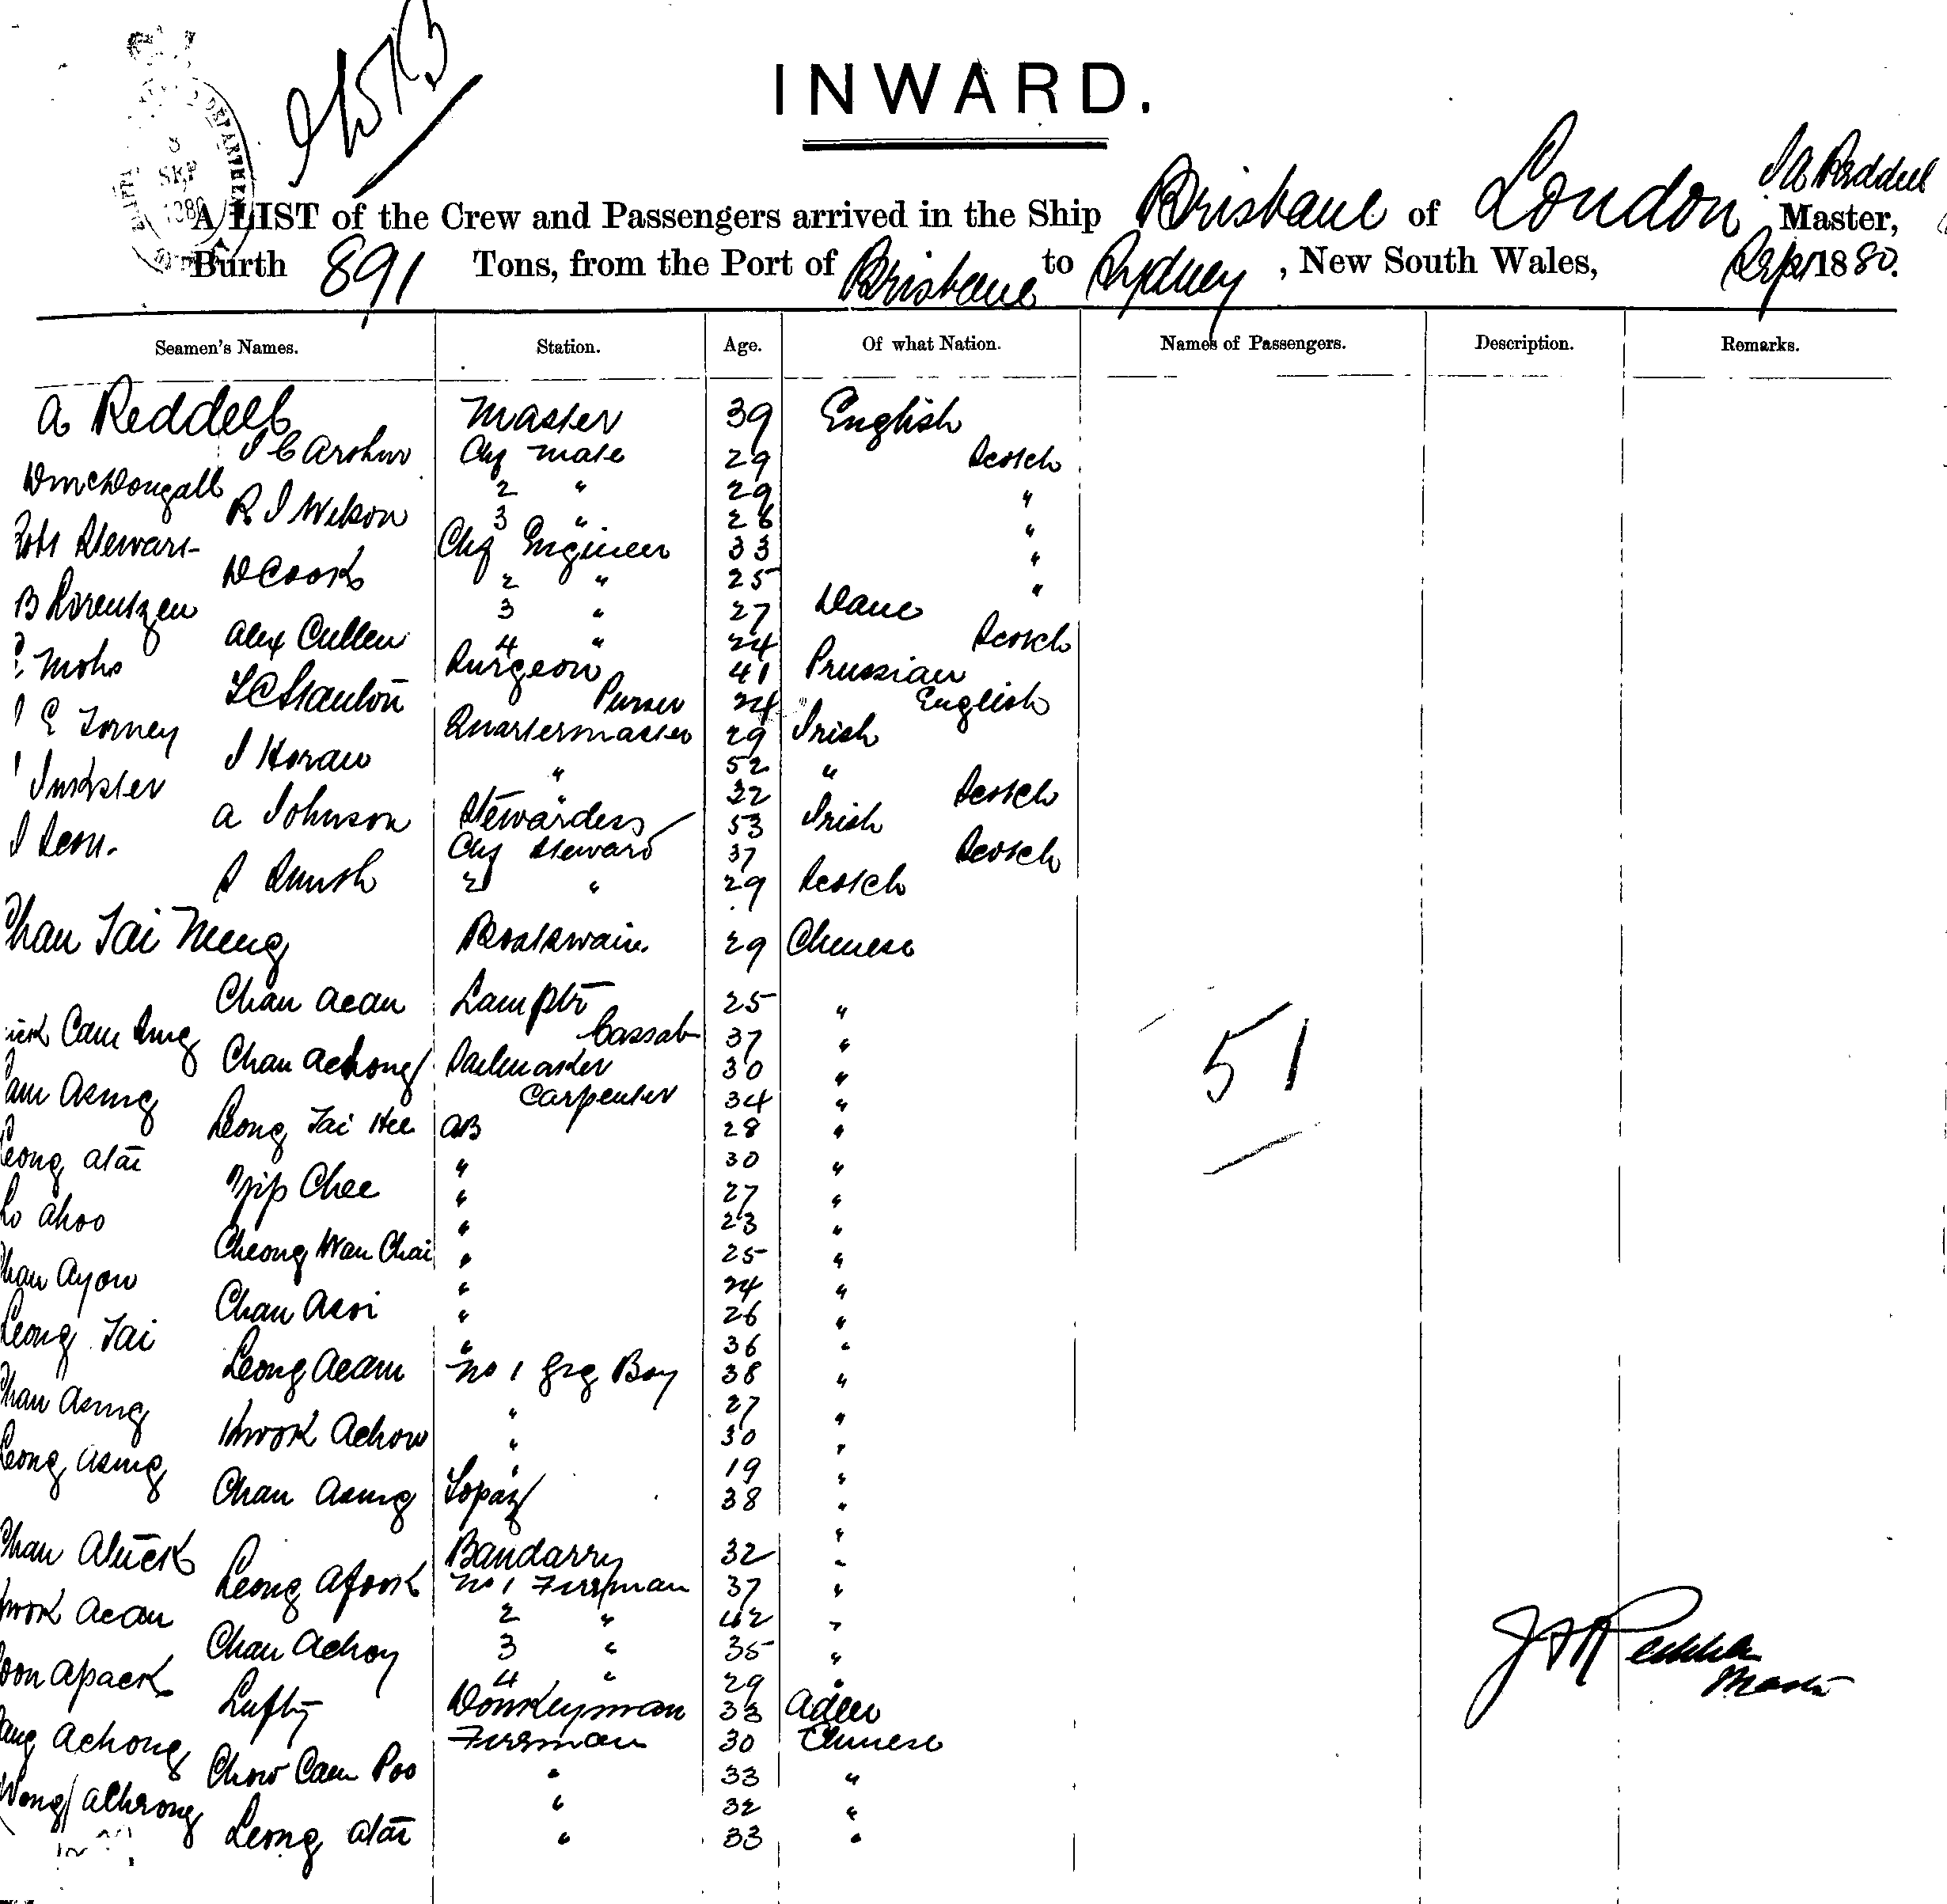 INWARD.
A LIST of the Crew and Passengers arrived in the Ship Brisbane of London, Master,
Burth 891 Tons, from the Port of Brisbane to Sydney, New South Wales, 1880.
Seamen's Names. Station. Age. Of what Nation. Names of Passengers. Description. Remarks.
A Reddell Master 39 English
J C Arthur Chf Mate 29 Scotch
D McDougall 2 " 29 "
R J Wilson 3 " 26 "
Robt Stewart Chf Engineer 33 "
D Cook 2 " 25 "
B Lorentzen 3 " 27 Dane
Alex Cullen 4 " 24 Scotch
Mohs Surgeon 41 Prussian
Purser 24 English
E Torney Quartermaster 29 Irish
J Horan " 52 "
Inkster " 32 Scotch
A Johnson Stewardess 53 Irish
Chf Steward 37 Scotch
2 " 29 Scotch
Chan Tai Meng Boatswain 29 Chinese
Chan Acan Lamptr 25 "
Cassab 37 "
Chan Achong Sailmaker 30 "
Carpenter 34 "
Leong Tai Hee AB 28 "
Leong Atai " 30 "
Yip Chee " 27 "
Ahoo " 23 "
Cheong Wan Chai " 25 "
Chan Ayow " 24 "
Chan Asoi " 26 "
Leong Tai " 36 "
Leong Acam No 1 Boy 38 "
Chan Asing " 27 "
Kwok Achow " 30 "
Leong Asing " 19 "
Chan Asing Topaz 38 "
Chan Atuck Bandarry 32 "
Leong Afook No 1 Fireman 37 "
Kwok Acan 2 " 42 "
Chan Achoy 3 " 35 "
Apack 4 " 29 "
Lufty Donkeyman 33 Aden
Achong Fireman 30 Chinese
Chow Cam Poo " 33 "
Wong " 32 "
Leong Atai " 33 "
51
Master